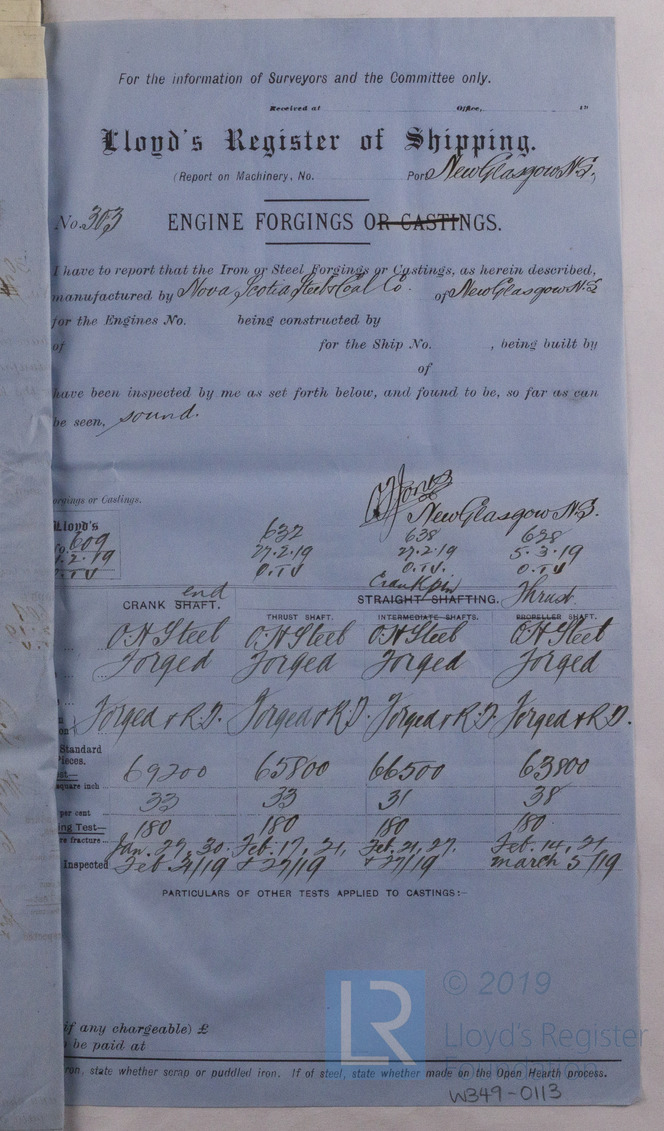 For the information of Surveyors and the Committee only.
Received at Office, 19
Lloyd's Register of Shipping.
(Report on Machinery, No. Port New Glasgow N.S.
No. 303 ENGINE FORGINGS OR CASTINGS.
I have to report that the Iron or Steel Forgings or Castings, as herein described,
manufactured by Nova Scotia Steel & Coal Co. of New Glasgow N.S
for the Engines No. being constructed by
of for the Ship No. , being built by
of
have been inspected by me as set forth below, and found to be, so far as can
be seen, sound.
orgings or Castings. Jones
New Glasgow N.S.
Lloyd's
No. 609 632 638 628
.2.19 27.2.19 27.2.19 5.3.19
O.T.J O.T.J O.T.J. O.T.J
end Crankpin Thrust
CRANK SHAFT. STRAIGHT SHAFTING.
THRUST SHAFT. INTERMEDIATE SHAFTS. PROPELLER SHAFT.
O H Steel O H Steel O H Steel O H Steel
Forged Forged Forged Forged
Forged & R.D. Forged & R.D. Forged & R.D. Forged & R.D.
Standard
Pieces.
69200 65800 66500 63800
square inch
33 33 31 38
per cent
ing Test— 180 180 180 180
re fracture Jan. 27, 30. Feb. 17, 21, Feb. 21, 27. Feb. 14, 21
Inspected Feb /19 & 27/19 & 27/19 march 5/19
PARTICULARS OF OTHER TESTS APPLIED TO CASTINGS:—
if any chargeable) £
be paid at
iron, state whether scrap or puddled iron. If of steel, state whether made on the Open Hearth process.
LR
© 2019
Lloyd's Register
Foundation
W349-0113